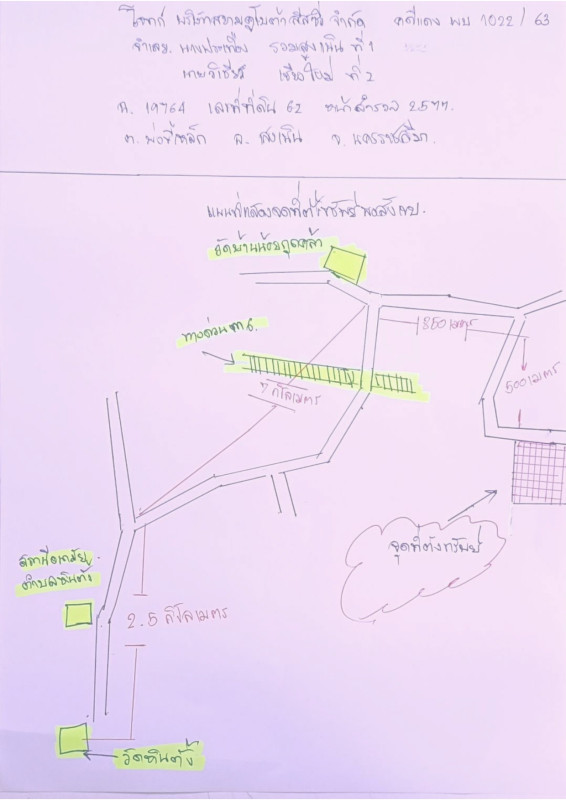 โจทก์ บริษัทสยามคูโบต้า ลีสซิ่ง จำกัด คดีแดง ผบ 1022 / 63
จำเลย นางประเทือง รวมสูงเนิน ที่ 1
นายวิเชียร เชียงใหม่ ที่ 2
ฉ. 19764 เลขที่ดิน 62 หน้าสำรวจ 2577
ต. อ. สูงเนิน จ. นครราชสีมา.
แผนที่แสดงจุดที่ตั้งทรัพย์พอสังเขป.
วัดบ้านน้อย
ทางด่วน
1850 เมตร
500 เมตร
7 กิโลเมตร
จุดที่ตั้งทรัพย์
สถานีอนามัย
ตำบลหินตั้ง
2.5 กิโลเมตร
วัดหินตั้ง